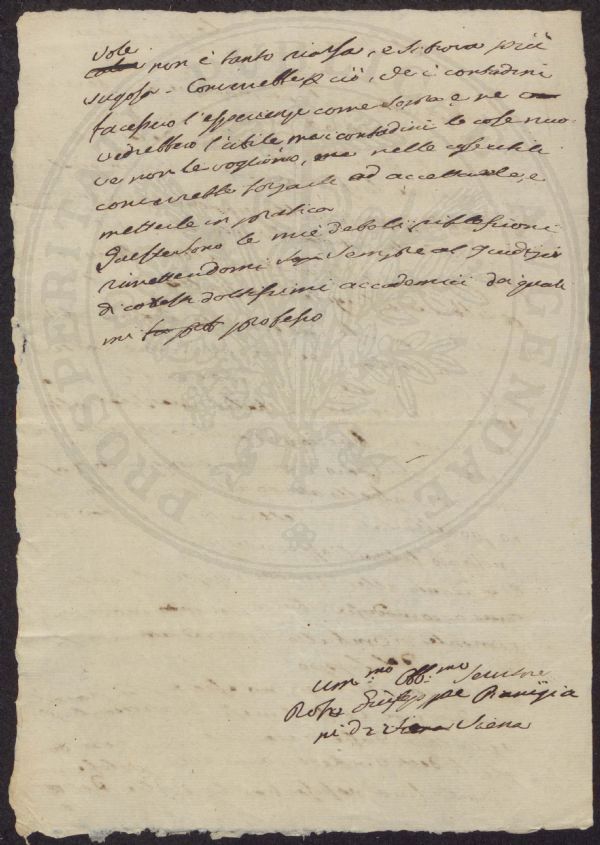 vole
non è tanto riarsa, e si trova più
sugosa. Converrebbe p ciò, che i contadini
facessero l'esperienze come sopra e ne
vedrebbero l'utile ma i contadini le cose nuo-
ve non le vogliono, ma nelle cose utili
converrebbe forzarli ad accettarle, e
metterle in pratica
Queste sono le mie deboli riflessioni
rimettendomi sempre al giudizio
di cotesti dottissimi accademici dai quali
mi professo
Um.mo Obb.mo Servitore
Giuseppe
ni di Siena
PROSPERITATI AUGENDAE